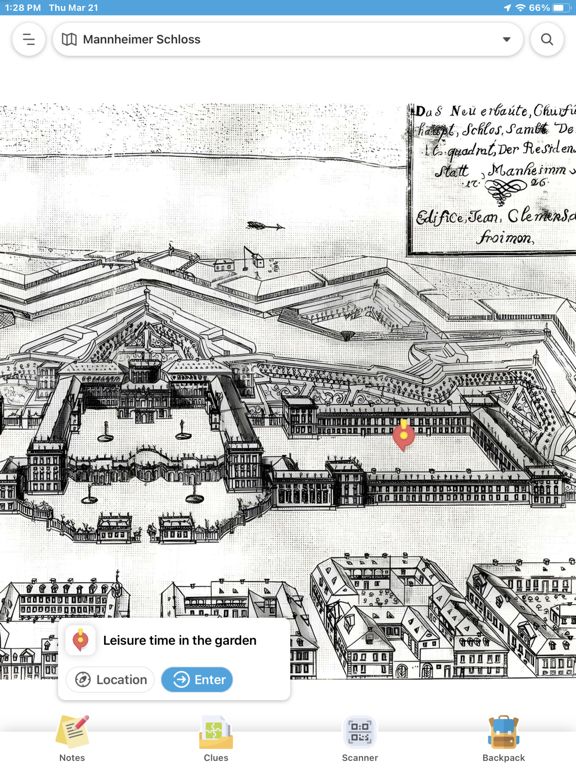 1:28 PM Thu Mar 21
66%
Mannheimer Schloss
Das Neu erbaute, Churfü
haupt, Schlos, Sambt De
it. quadrat, Der Residen
Statt, Manheimm
17 26.
Edifice, Jean, Clemens, d
froimon,
Leisure time in the garden
Location
Enter
Notes
Clues
Scanner
Backpack